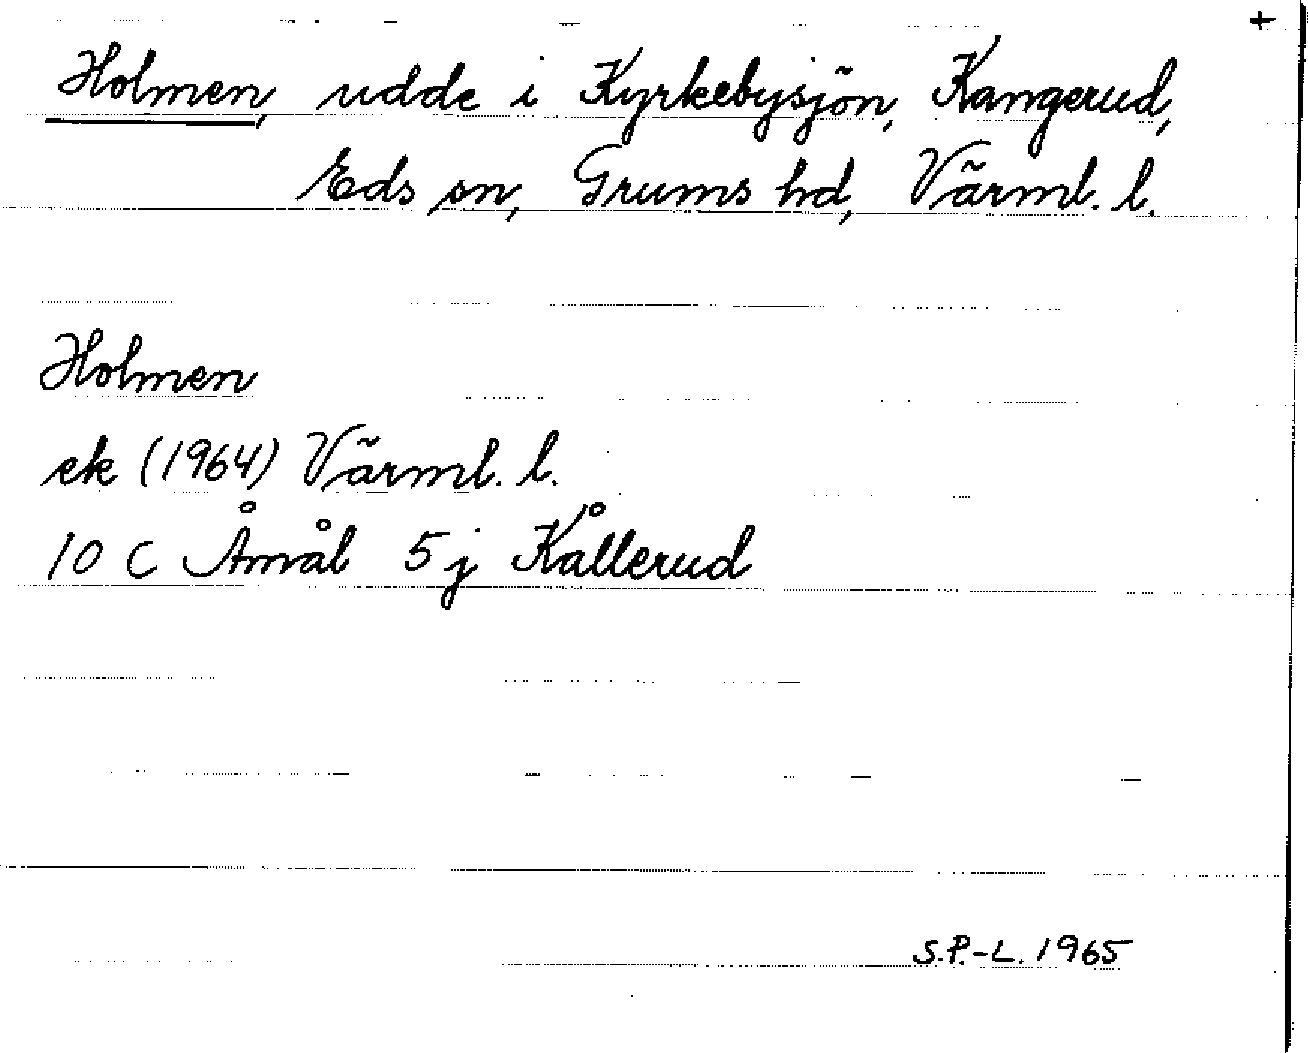 +
Holmen, udde i Kyrkebysjön, Kangerud,
Eds sn, Grums hd, Värml. l.
Holmen
ek (1964) Värml. l.
10 C Åmål 5 j Kållerud
S.P.-L. 1965